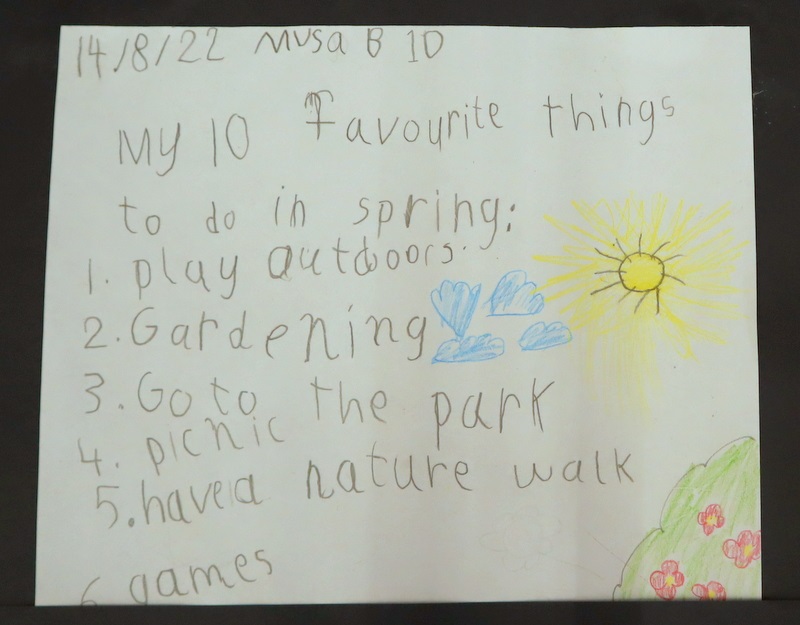 14/8/22 Musa B 1D
My 10 favourite things
to do in spring:
1. play outdoors.
2. Gardening
3. Go to the park
4. picnic
5. have a nature walk
6 games